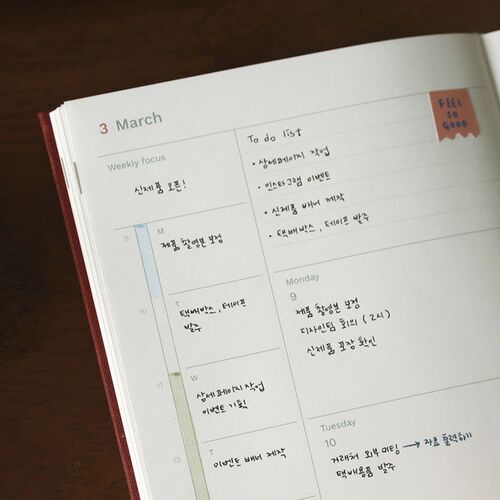 3 March
Weekly focus
신제품 오픈!
9
M
제품 촬영본 보정
10
T
택배박스, 테이프
발주
11
W
상세페이지 작업
이벤트 기획
12
T
이벤트 배너 제작
To do list
• 상세페이지 작업
• 인스타그램 이벤트
• 신제품 배너 제작
• 택배박스, 테이프 발주
FEEL
SO
GOOD
Monday
9
제품 촬영본 보정
디자인팀 회의 (2시)
신제품 포장 확인
Tuesday
10
거래처 외부 미팅 → 자료 출력하기
택배용품 발주